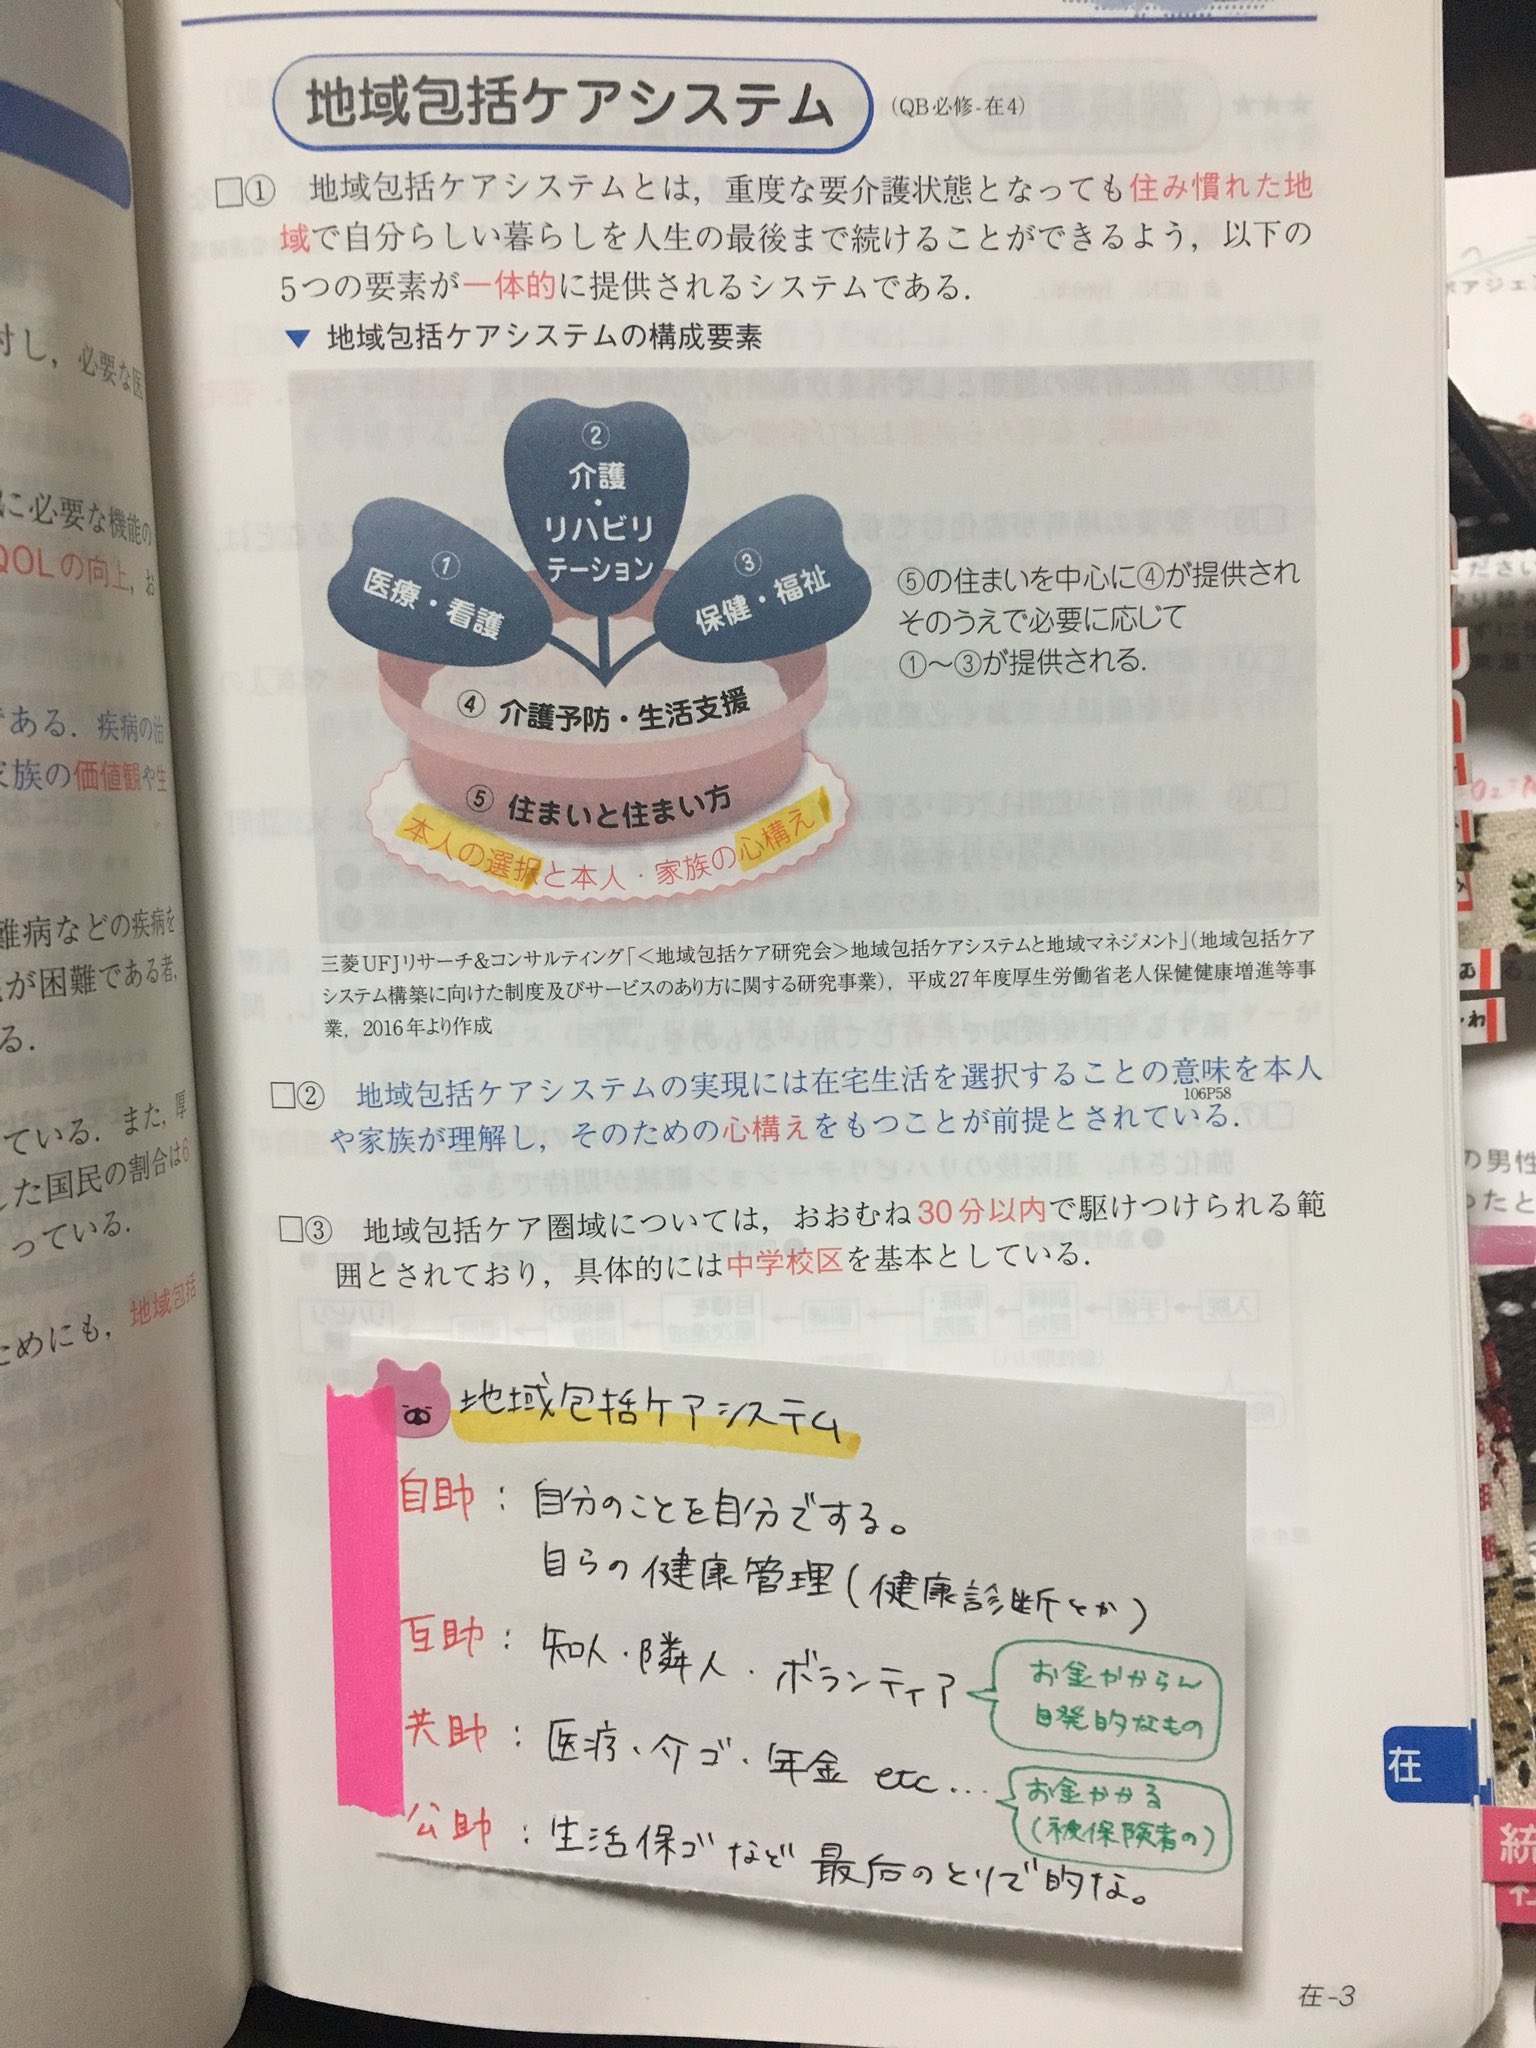 地域包括ケアシステム (QB必修-在4)
□① 地域包括ケアシステムとは，重度な要介護状態となっても住み慣れた地
域で自分らしい暮らしを人生の最後まで続けることができるよう，以下の
5つの要素が一体的に提供されるシステムである．
▼ 地域包括ケアシステムの構成要素
②
介護
・
リハビリ
テーション
①
医療・看護
③
保健・福祉
④ 介護予防・生活支援
⑤ 住まいと住まい方
本人の選択と本人・家族の心構え
⑤の住まいを中心に④が提供され
そのうえで必要に応じて
①～③が提供される．
三菱UFJリサーチ&コンサルティング「＜地域包括ケア研究会＞地域包括ケアシステムと地域マネジメント」（地域包括ケア
システム構築に向けた制度及びサービスのあり方に関する研究事業），平成27年度厚生労働省老人保健健康増進等事
業，2016年より作成
□② 地域包括ケアシステムの実現には在宅生活を選択することの意味を本人
や家族が理解し，そのための心構えをもつことが前提とされている．
106P58
□③ 地域包括ケア圏域については，おおむね30分以内で駆けつけられる範
囲とされており，具体的には中学校区を基本としている．
地域包括ケアシステム
自助：自分のことを自分でする。
自らの健康管理(健康診断とか)
互助：知人・隣人・ボランティア
お金かからん
自発的なもの
共助：医療・介ゴ・年金 etc...
お金かかる
(被保険者の)
公助：生活保ゴなど最后のとりで的な。
在
在-3
対し，必要な医
に必要な機能の
QOLの向上，お
である．疾病の治
家族の価値観や生
難病などの疾病を
が困難である者，
る．
ている．また，厚
した国民の割合は6
っている．
ためにも，地域包括
統